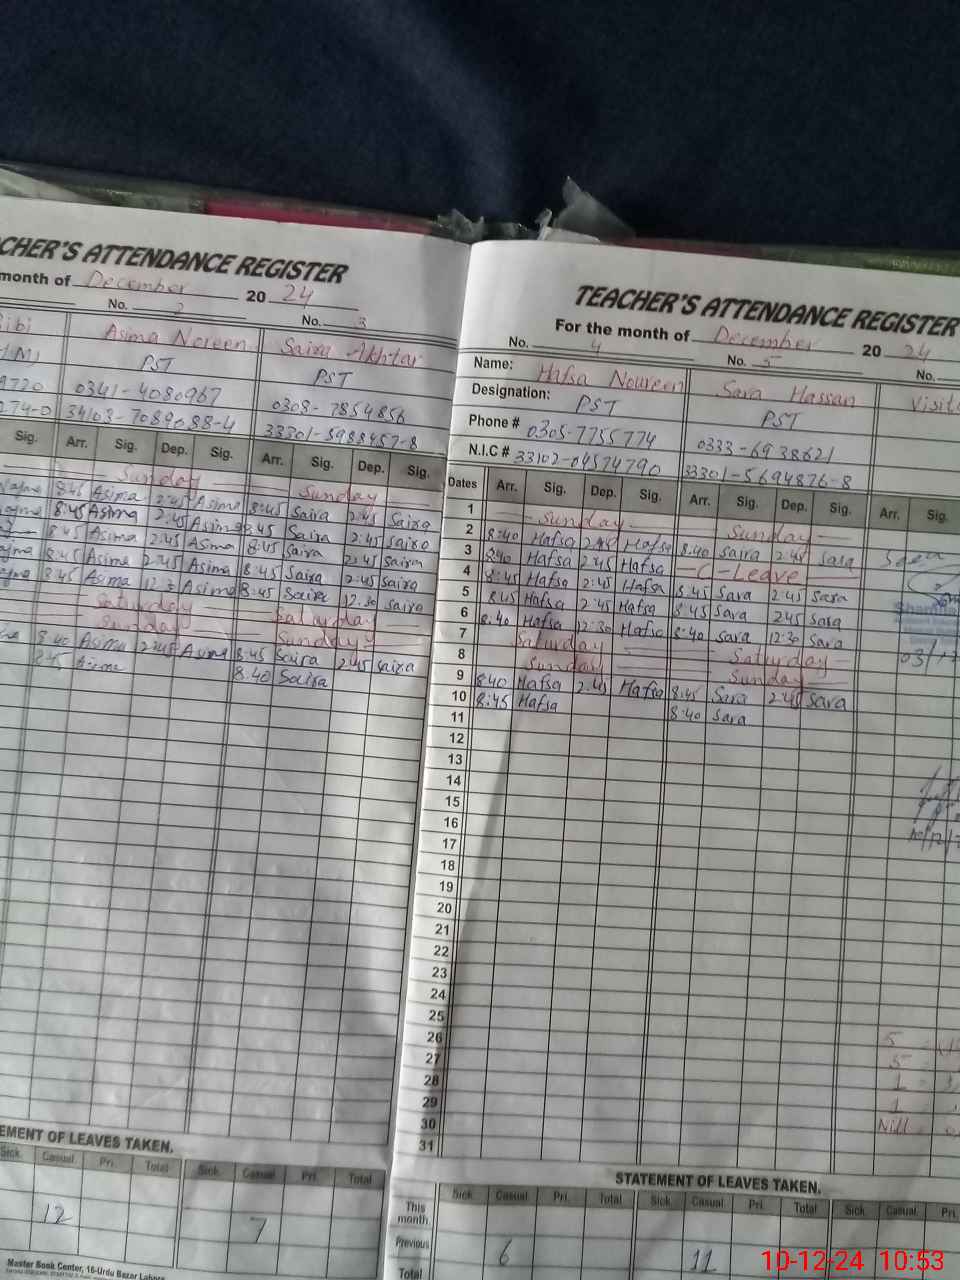 CHER'S ATTENDANCE REGISTER
month of December 20 24
No. 2 No. 3
Bibi Asima Noreen Saira Akhtar
PST PST
A720 0341-4080967 0308-7854856
274-0 34103-7089088-4 33301-5988457-8
Sig. Arr. Sig. Dep. Sig. Arr. Sig. Dep. Sig.
Sunday Sunday
8:45 Asima 2:45 Asima 8:45 Saira 2:45 Saira
8:45 Asima 2:45 Asima 8:45 Saira 2:45 Saira
8:45 Asima 2:45 Asima 8:45 Saira 2:45 Saira
8:45 Asima 2:45 Asima 8:45 Saira 2:45 Saira
8:45 Asima 12:3 Asima 8:45 Saira 12:30 Saira
Saturday Saturday
Sunday Sunday
8:40 Asima 2:45 Asima 8:45 Saira 2:45 Saira
8:45 Asima 8:40 Saira
EMENT OF LEAVES TAKEN.
Sick. Casual Pri. Total Sick. Casual Pri. Total
12 7
Master Book Center, 16-Urdu Bazar Lahore
TEACHER'S ATTENDANCE REGISTER
For the month of December 20 24
No. 4 No. 5 No.
Name: Hafsa Noureen Sara Hassan Visito
Designation: PST PST
Phone # 0305-7755774 0333-6938621
N.I.C # 33102-04574790 33301-5694876-8
Dates Arr. Sig. Dep. Sig. Arr. Sig. Dep. Sig. Arr. Sig.
1 Sunday Sunday
2 8:40 Hafsa 2:45 Hafsa 8:40 Sara 2:45 Sara Seen
3 8:40 Hafsa 2:45 Hafsa C-Leave
4 8:45 Hafsa 2:45 Hafsa 8:45 Sara 2:45 Sara
5 8:45 Hafsa 2:45 Hafsa 8:45 Sara 2:45 Sara
6 8:40 Hafsa 12:30 Hafsa 8:40 Sara 12:30 Sara
7 Saturday Saturday 03/12
8 Sunday Sunday
9 8:40 Hafsa 2:45 Hafsa 8:45 Sara 2:45 Sara
10 8:45 Hafsa 8:40 Sara
11
12
13
14
15
16
17
18
19
20
21
22
23
24
25
26 5
27 5
28 1
29 1
30 Nill
31
STATEMENT OF LEAVES TAKEN.
Sick Casual Pri. Total Sick. Casual Pri. Total Sick. Casual Pri.
This month.
Previous 6 11
Total
10-12-24 10:53